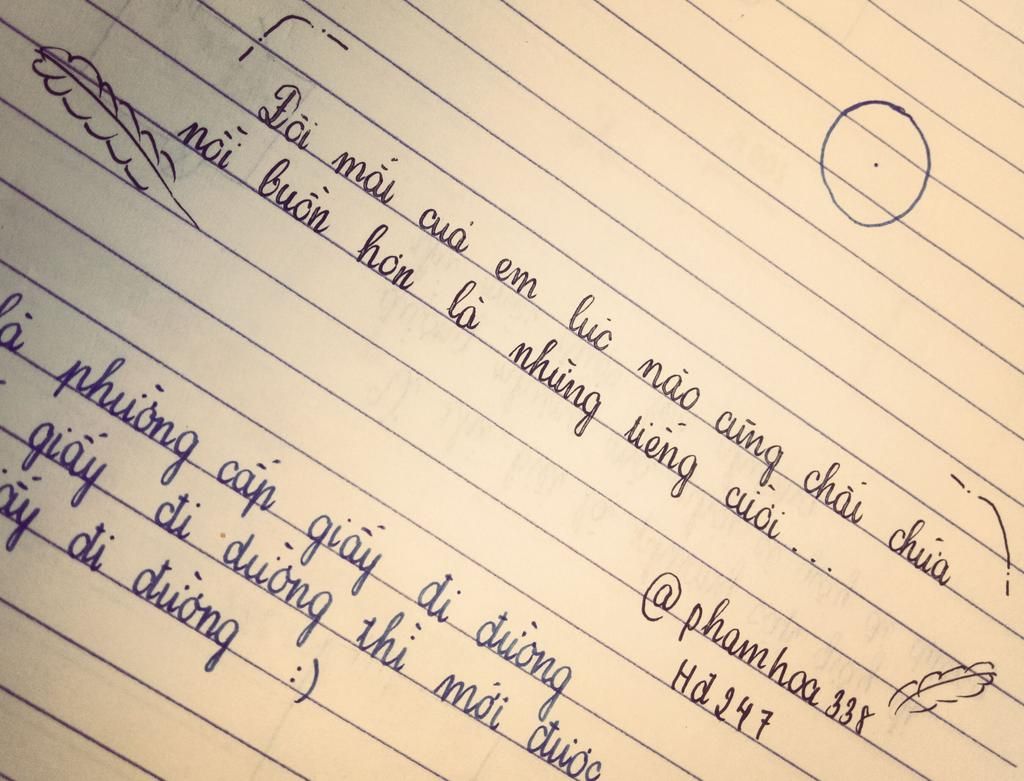 Đôi mắt của em lúc nào cũng chất chứa
nỗi buồn hơn là những tiếng cười...
@phamhoa338
Hđ247
là phường cấp giấy đi đường
giấy đi đường thì mới được
giấy đi đường :)